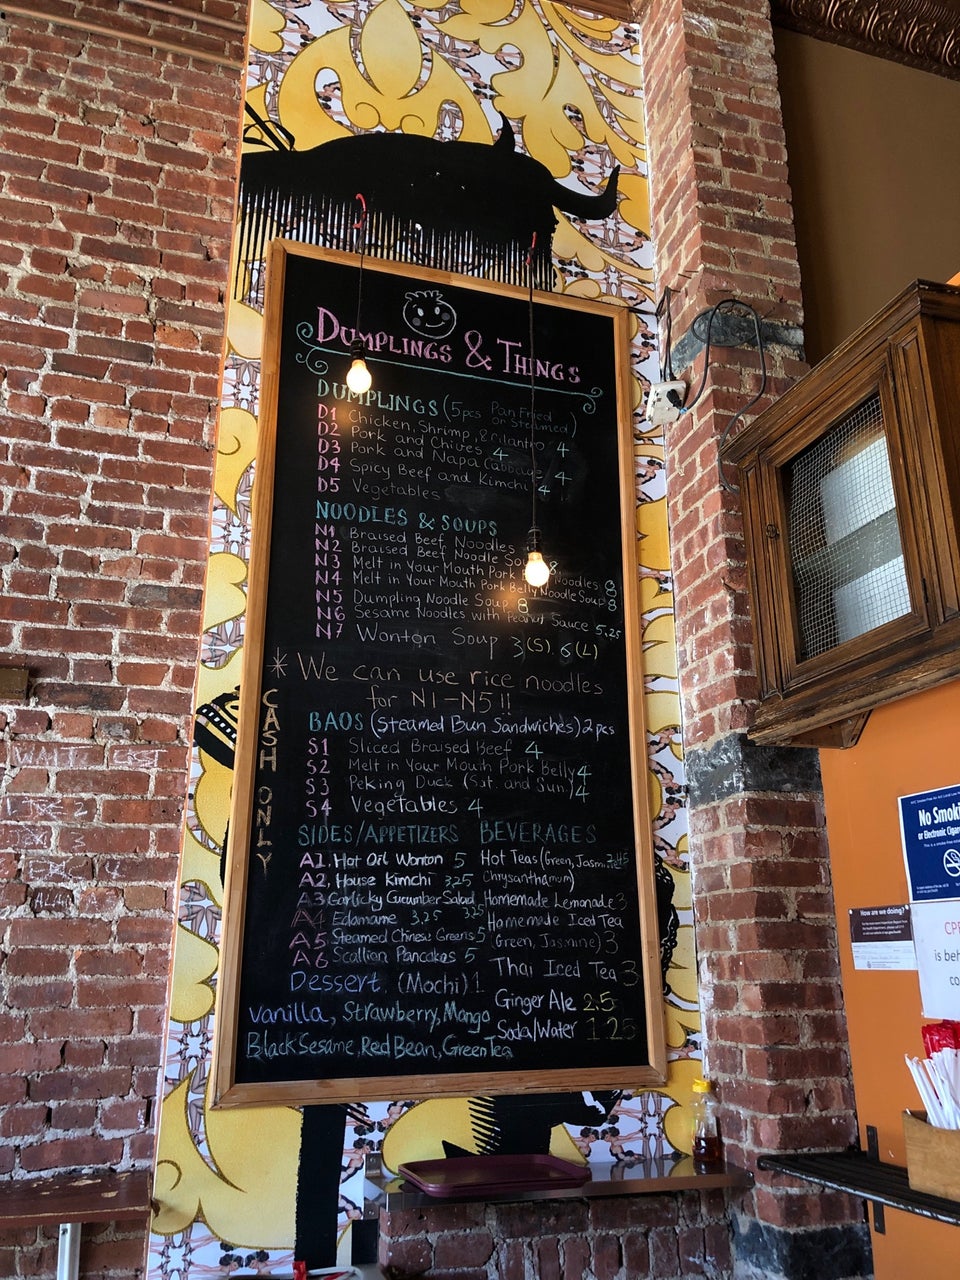 DUMPLINGS & THINGS
DUMPLINGS (5pcs Pan Fried or Steamed)
D1 Chicken, Shrimp, & Cilantro 4
D2 Pork and Chives 4
D3 Pork and Napa Cabbage 4
D4 Spicy Beef and Kimchi 4
D5 Vegetables
NOODLES & SOUPS
N1 Braised Beef Noodles
N2 Braised Beef Noodle Soup 8
N3 Melt in Your Mouth Pork Noodles 8
N4 Melt in Your Mouth Pork Belly Noodle Soup 8
N5 Dumpling Noodle Soup 8
N6 Sesame Noodles with Peanut Sauce 5.25
N7 Wonton Soup 3(S) 6(L)
* We can use rice noodles
for N1-N5!!
CASH ONLY
BAOS (Steamed Bun Sandwiches) 2pcs
S1 Sliced Braised Beef 4
S2 Melt in Your Mouth Pork Belly 4
S3 Peking Duck (Sat. and Sun) 4
S4 Vegetables 4
SIDES/APPETIZERS
A1. Hot Oil Wonton 5
A2. House Kimchi 3.25
A3 Garlicky Cucumber Salad 3.25
A4 Edamame 3.25
A5 Steamed Chinese Greens 5
A6 Scallion Pancakes 5
Dessert. (Mochi) 1
Vanilla, Strawberry, Mango
Black Sesame, Red Bean, Green Tea
BEVERAGES
Hot Teas (Green, Jasm.
Chrysanthamum)
Homemade Lemonade 3
Homemade Iced Tea
(Green, Jasmine) 3
Thai Iced Tea 3
Ginger Ale 2.5
Soda/Water 1.25
No Smoki
or Electronic Cigare
How are we doing?
CPR
is beh
co